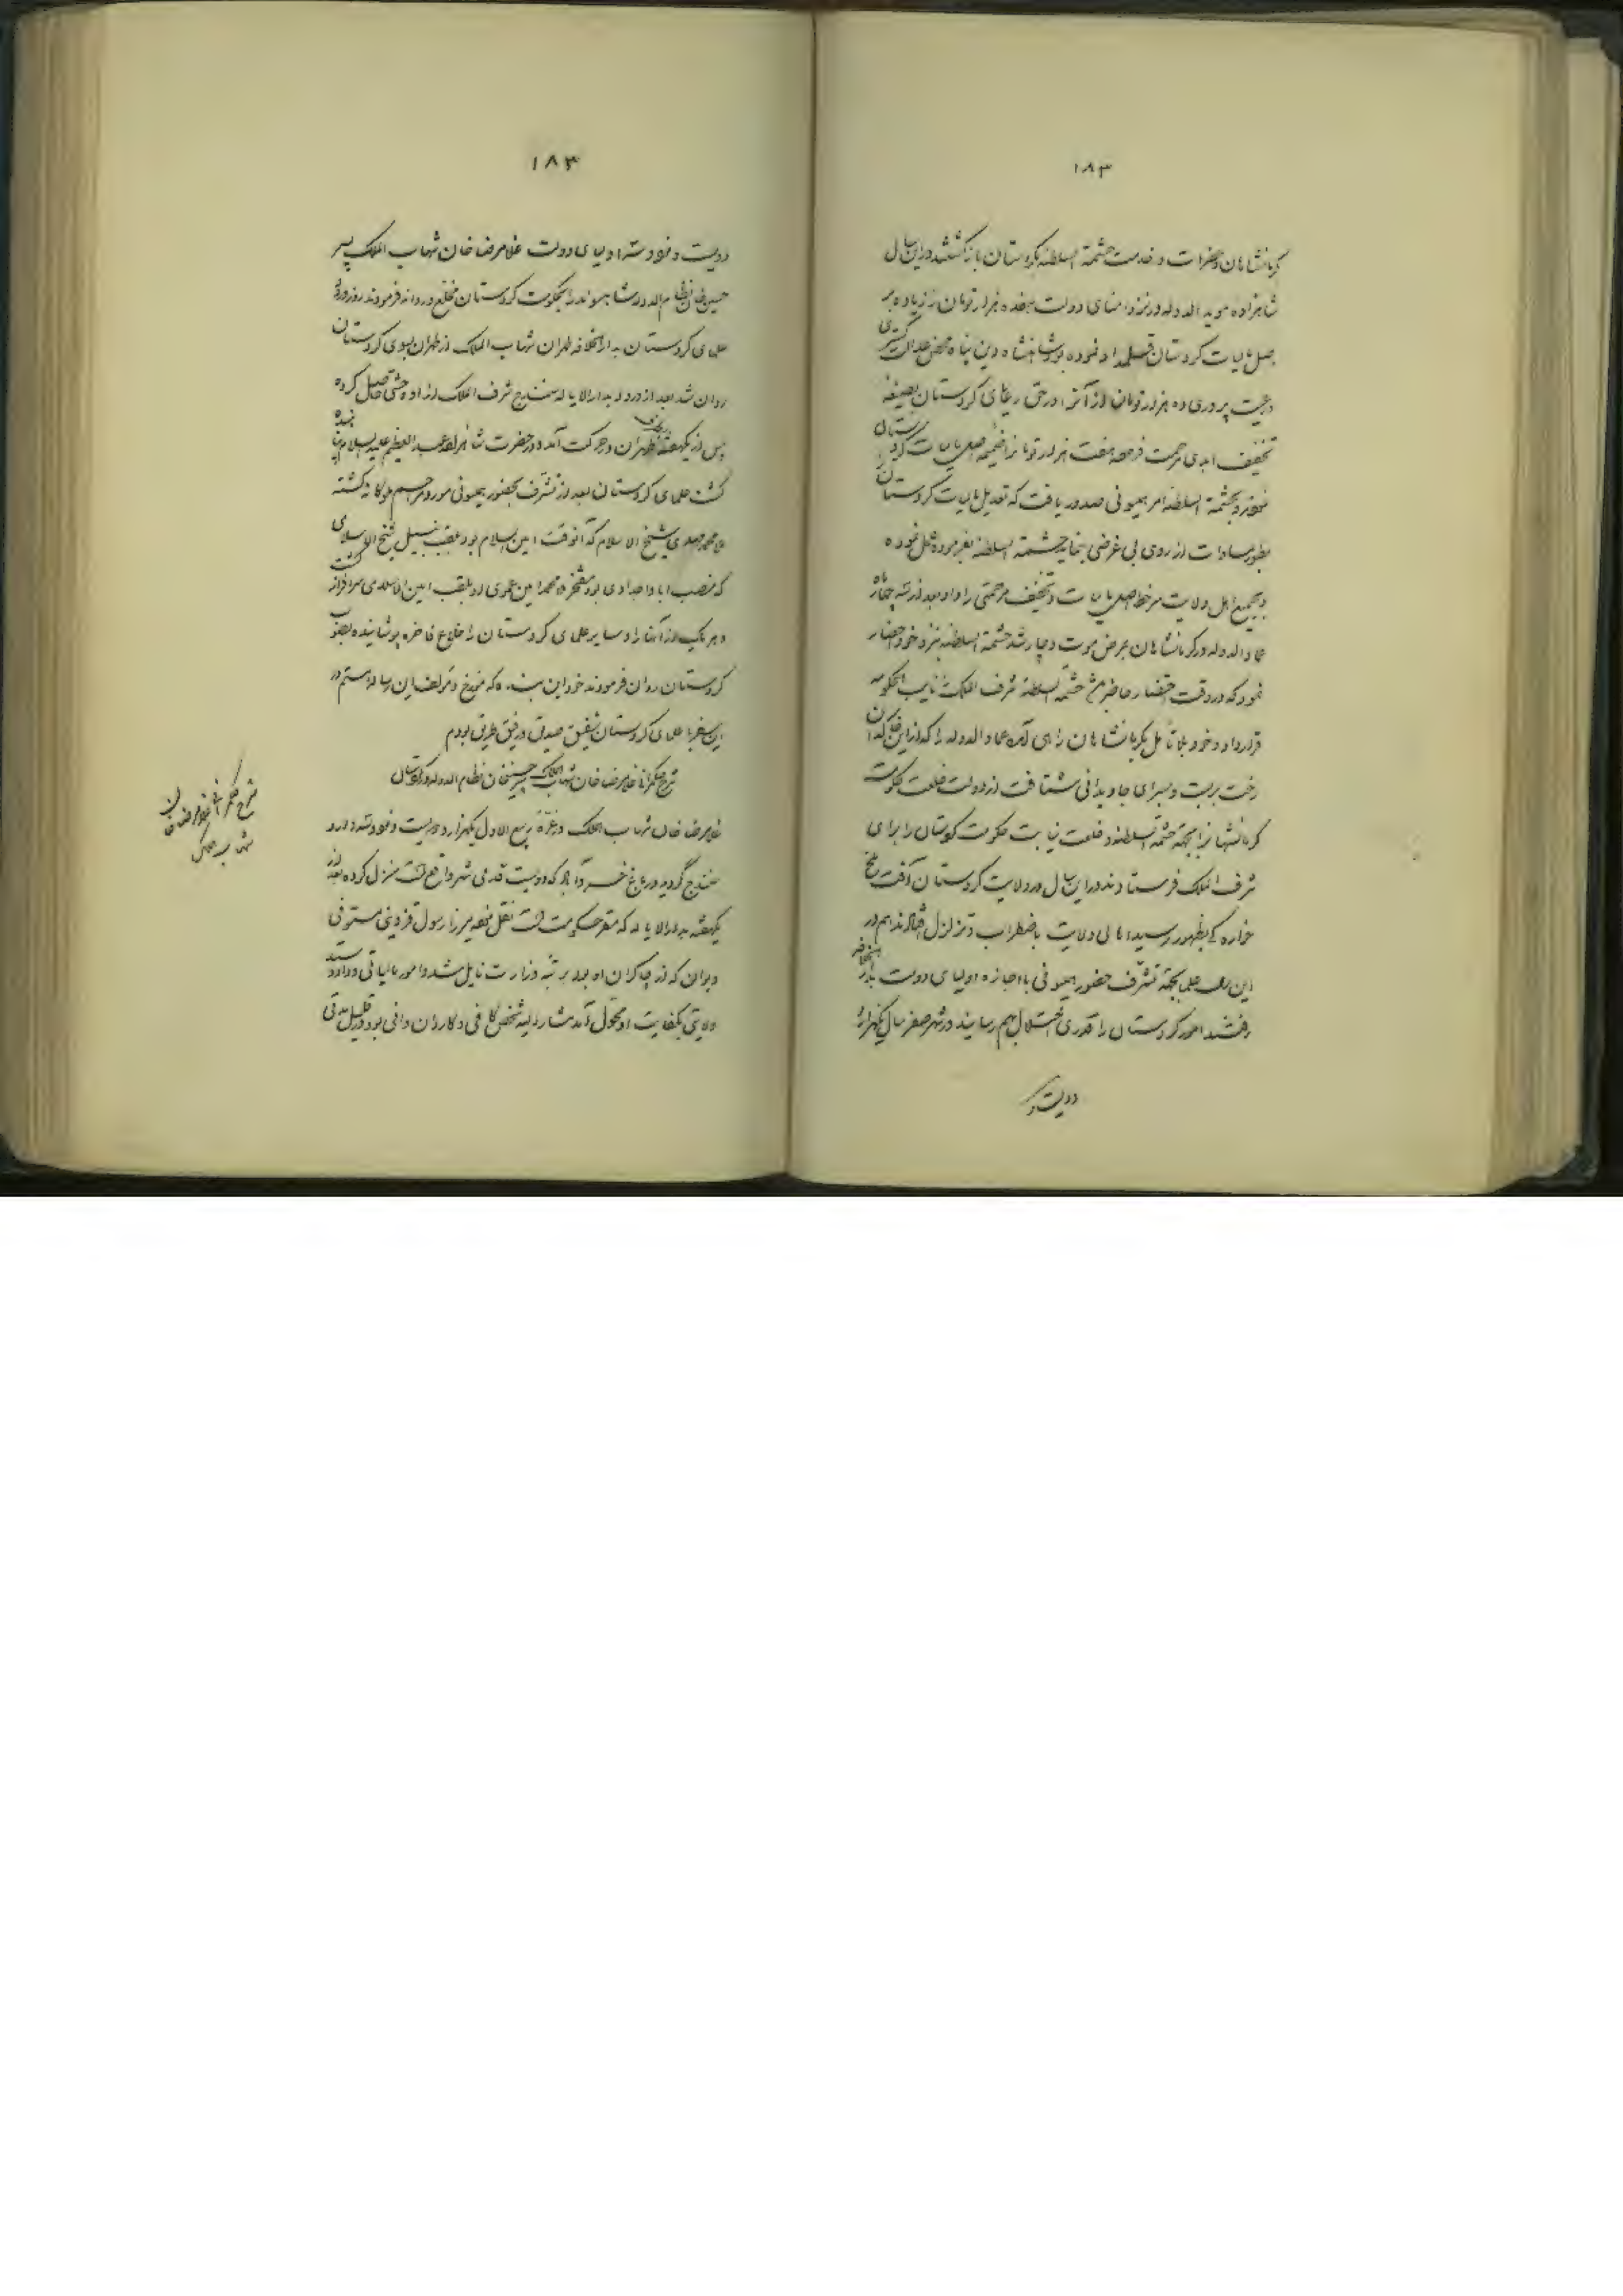 ۱۸۳
کرمانشاهان و در خدمت حشمة السلطنه بکردستان بازگشتند در این سال
شاهزاده موید الدوله در نزد امنای دولت هفده هزار تومان زیاده بر
اصل مالیات کردستان قلمداد نموده بود شاهنشاه دین پناه محض عدالت گستری
و رعیت پروری ده هزار تومان از آنرا در حق رعایای کردستان بصیغهٔ
تخفیف ابدی مرحمت فرموده هفت هزار تومان را ضمیمهٔ اصل مالیات کردستان
نمودند و بحشمة السلطنه امر همیونی صدور یافت که تعدیل مالیات کردستان را
بطور مساوات از روی بی غرضی بنماید حشمة السلطنه بفرموده عمل نموده
و بجمیع اهل ولایت سر خط اصل مالیات و تخفیف مرحمتی را داد و بعد از سه چهار ماه
عماد الدوله در کرمانشاهان بمرض موت دچار شد حشمة السلطنه را نزد خود احضار
نمود که در وقت احتضار حاضر حشمة السلطنه شرف الملک را نایب الحکومه
قرار داد و خود بلا تأمل بکرمانشاهان رای آمد عماد الدوله که از این
رخت بربست و بسرای جاویدانی شتافت از دولت خلعت حکومت
کرمانشاهان را بجهة حشمة السلطنه و خلعت نیابت حکومت کردستان را برای
شرف الملک فرستادند در این سال در ولایت کردستان آفت ملخ
خواره بظهور رسید اهالی ولایت باضطراب و تزلزل افتادند هم در
این سال علما بجهة تشرف حضور همیونی با اجازه اولیای دولت بدار الخلافه
رفتند امور کردستان را قدری اختلال بهم رسانید در شهر صفر سال یکهزار و
دویست و
۱۸۳
دویست و نود و سه اولیای دولت غلامرضا خان شهاب الملک پسر
حسین خان نظام الدوله شاهسوند را بحکومت کردستان مخلع و روانه فرمودند روز ورود
علمای کردستان بدار الخلافه طهران شهاب الملک از طهران بسوی کردستان
روان شد بعد از ورود بدار الایاله سنندج شرف الملک از او وحشتی حاصل کرده
پس از یکهفته بطرف طهران در حرکت آمده در حضرت شاهزاده عبد العظیم علیه السلام پناهنده
گشت علمای کردستان بعد از تشرف بحضور همیونی مورد مراحم ملوکانه گشته
ملا محمد مهدی شیخ الاسلام که آنوقت امین الاسلام بود بلقب نبیل شیخ الاسلامی
که منصب آبا و اجدادی بود مفتخر و محمد امین عموی او بلقب امین الاسلامی سرافراز گشت
و هر یک از آنها را و سایر علمای کردستان را خلاع فاخره پوشانیده بصوب
کردستان روان فرمودند خود این بنده که مورخ و مؤلف این رساله هستم در
این سفر با علمای کردستان شفیق صدیق و رفیق طریق بودم
شرح حکمرانی غلامرضا خان شهاب الملک پسر حسین خان نظام الدوله در کردستان
غلامرضا خان شهاب الملک در غرهٔ ربیع الاول یکهزار و دویست و نود و سه وارد
سنندج گردید در باغ خسرو آباد که دویست قدمی شهر واقع است منزل کرده بعد از
یکهفته بدار الایاله که مقر حکومت است نقل نمود میرزا رسول قزوینی مستوفی
دیوان که از چاکران او بود بر تبهٔ وزارت نایل شد و امور مالیاتی و داد و ستد
ولایتی بکفایت او محول آمد مشار الیه شخص کافی و کاردان وافی بود در قلیل مدتی
شرح حکمرانی غلامرضا خان
شهاب الملک